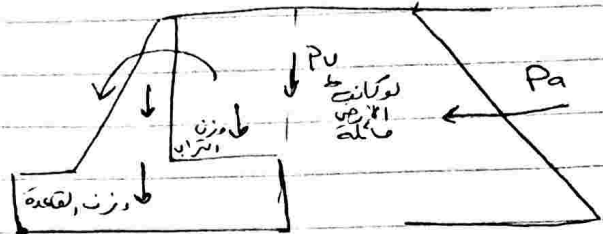 Pv
لو كانت
الأرض
مائلة
Pa
وزن
التراب
وزن القاعدة